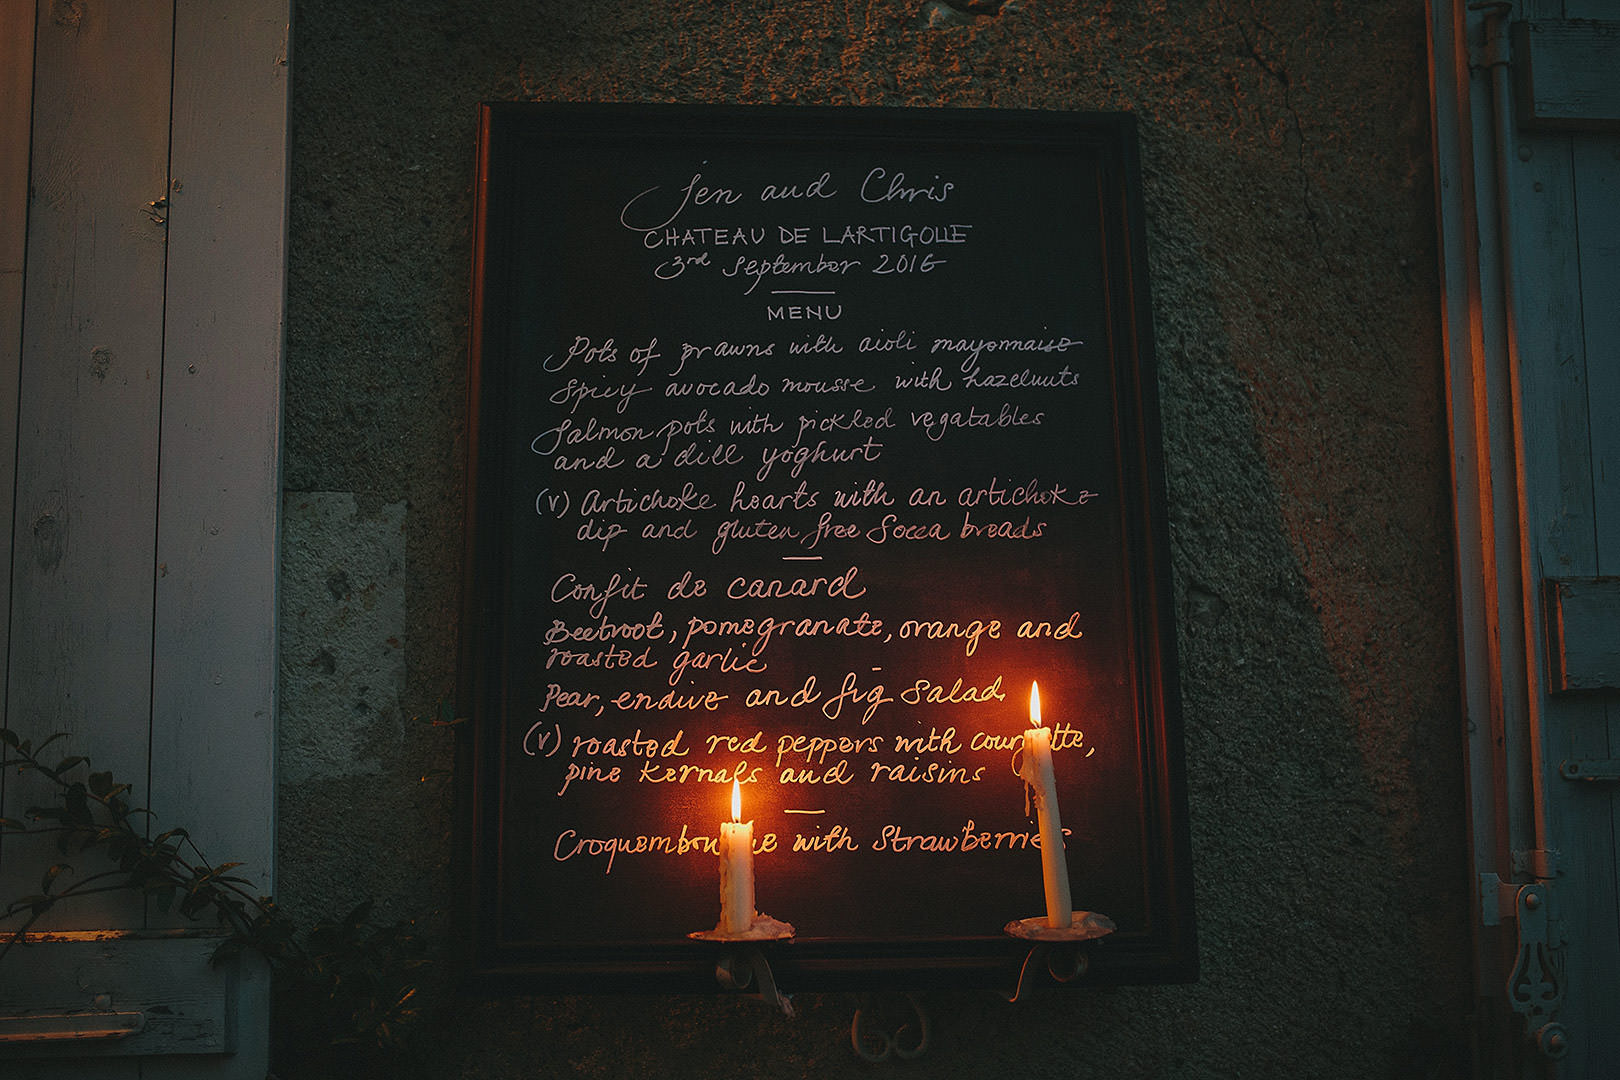 Jen and Chris
CHATEAU DE LARTIGOLLE
3rd September 2016
MENU
Pots of prawns with aioli mayonnaise
Spicy avocado mousse with hazelnuts
Salmon pots with pickled vegatables
and a dill yoghurt
(v) Artichoke hearts with an artichoke
dip and gluten free Socca breads
Confit de canard
Beetroot, pomegranate, orange and
roasted garlic
Pear, endive and fig Salad
(v) roasted red peppers with courgette,
pine kernals and raisins
Croquembouche with Strawberries